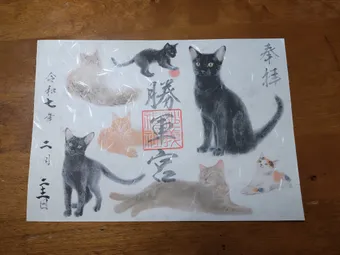 奉拝
勝軍宮
令和七年
二月
二三日